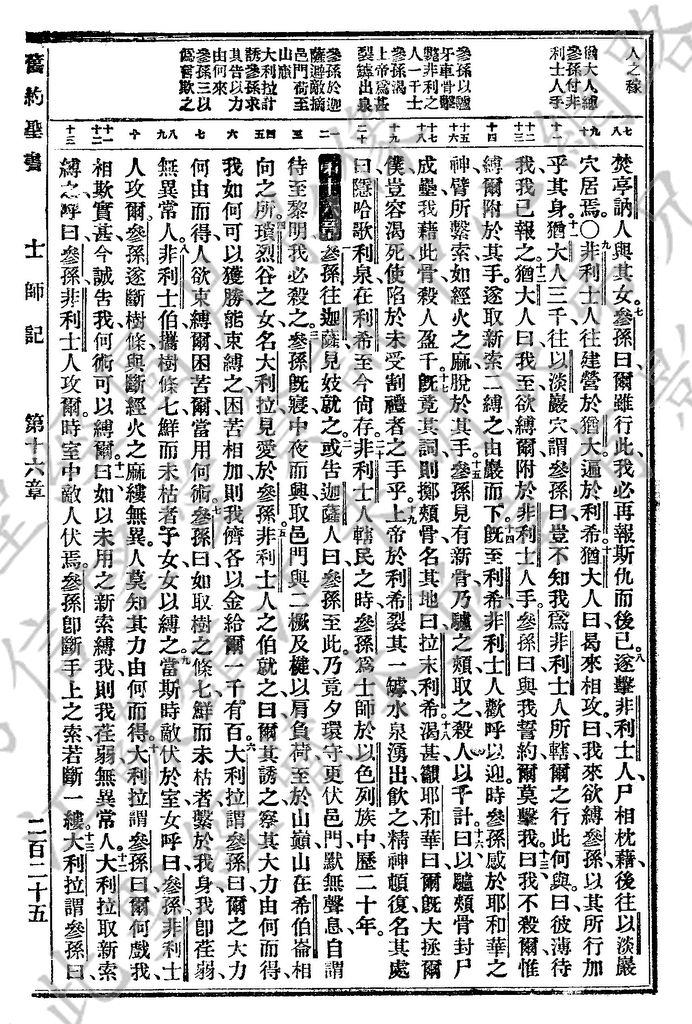 人之稼
猶大人縛
參孫付非
利士人手
參孫以驢
牙車骨擊
斃非利之
人一千士
參孫渴甚
上帝爲
裂罅出泉
參孫於迦
薩遁敵摘
邑門荷至
山巔
大利拉計
誘參孫求
其告以力
由何來
參孫三以
僞言欺之
焚亭訥人與其女參孫曰爾雖行此我必再報斯仇而後已遂擊非利士人尸相枕藉後往以淡巖
穴居焉○非利士人往建營於猶大遍於利希猶大人曰曷來相攻曰我來欲縛參孫以其所行加
乎其身猶大人三千往以淡巖穴謂參孫曰豈不知我爲非利士人所轄爾之行此何與曰彼薄待
我我已報之猶大人曰我至欲縛爾附於非利士人手參孫曰與我誓約爾莫擊我曰我不殺爾惟
縛爾附於其手遂取新索二縛之由巖而下旣至利希非利士人歡呼以迎時參孫感於耶和華之
神臂所繫索如經火之麻脫於其手參孫見有新骨乃驢之頰取之殺人以千計曰以驢頰骨封尸
成壘我藉此骨殺人盈千旣竟其詞則擲頰骨名其地曰拉末利希渴甚籲耶和華曰爾旣大拯爾
僕豈容渴死使陷於未受割禮者之手乎上帝於利希裂其一罅水泉湧出飲之精神頓復名其處
曰隱哈歌利泉在利希至今尙存非利士人轄民之時參孫爲士師於以色列族中歷二十年
參孫往迦薩見妓就之或告迦薩人曰參孫至此乃竟夕環守更伏邑門默無聲息自謂
待至黎明我必殺之參孫旣寢中夜而興取邑門與二橛及楗以肩負荷至於山巔山在希伯崙相
向之所瑣烈谷之女名大利拉見愛於參孫非利士人之伯就之曰爾其誘之察其大力由何而得
我如何可以獲勝能束縛之困苦相加則我儕各以金給爾一千有百大利拉謂參孫曰爾之大力
何由而得人欲束縛爾困苦爾當用何術參孫曰如取樹之條七鮮而未枯者繫於我身我卽荏弱
無異常人非利士伯攜樹條七鮮而未枯者予女女以縛之當斯時敵伏於室女呼曰參孫非利士
人攻爾參孫遂斷樹條與斷經火之麻縷無異人莫知其力由何而得大利拉謂參孫曰爾何戲我
相欺實甚今誠告我何術可以縛爾曰如以未用之新索縛我則我荏弱無異常人大利拉取新索
縛之呼曰參孫非利士人攻爾時室中敵人伏焉參孫卽斷手上之索若斷一縷大利拉謂參孫曰
舊約聖書 士師記 第十六章 二百二十五